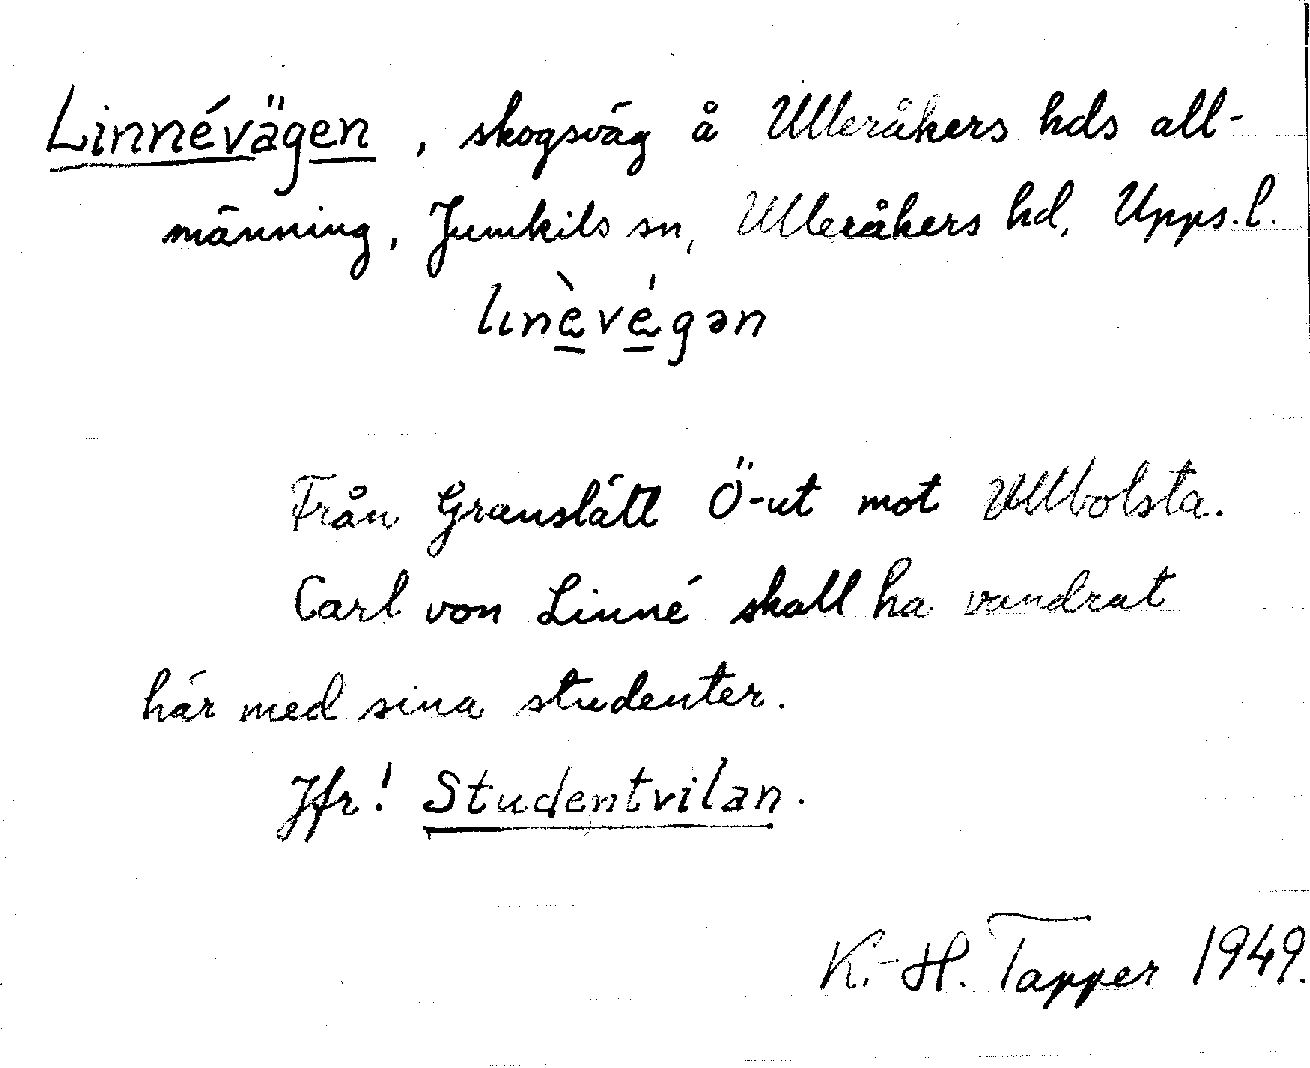 Linnévägen, skogsväg å Ulleråkers hds all-
männing, Jumkils sn, Ulleråkers hd, Upps.l.
lınèvégən
Från Granslätt Ö-ut mot Ullbolsta.
Carl von Linné skall ha vandrat
här med sina studenter.
Jfr! Studentvilan.
K.-H. Tapper 1949.